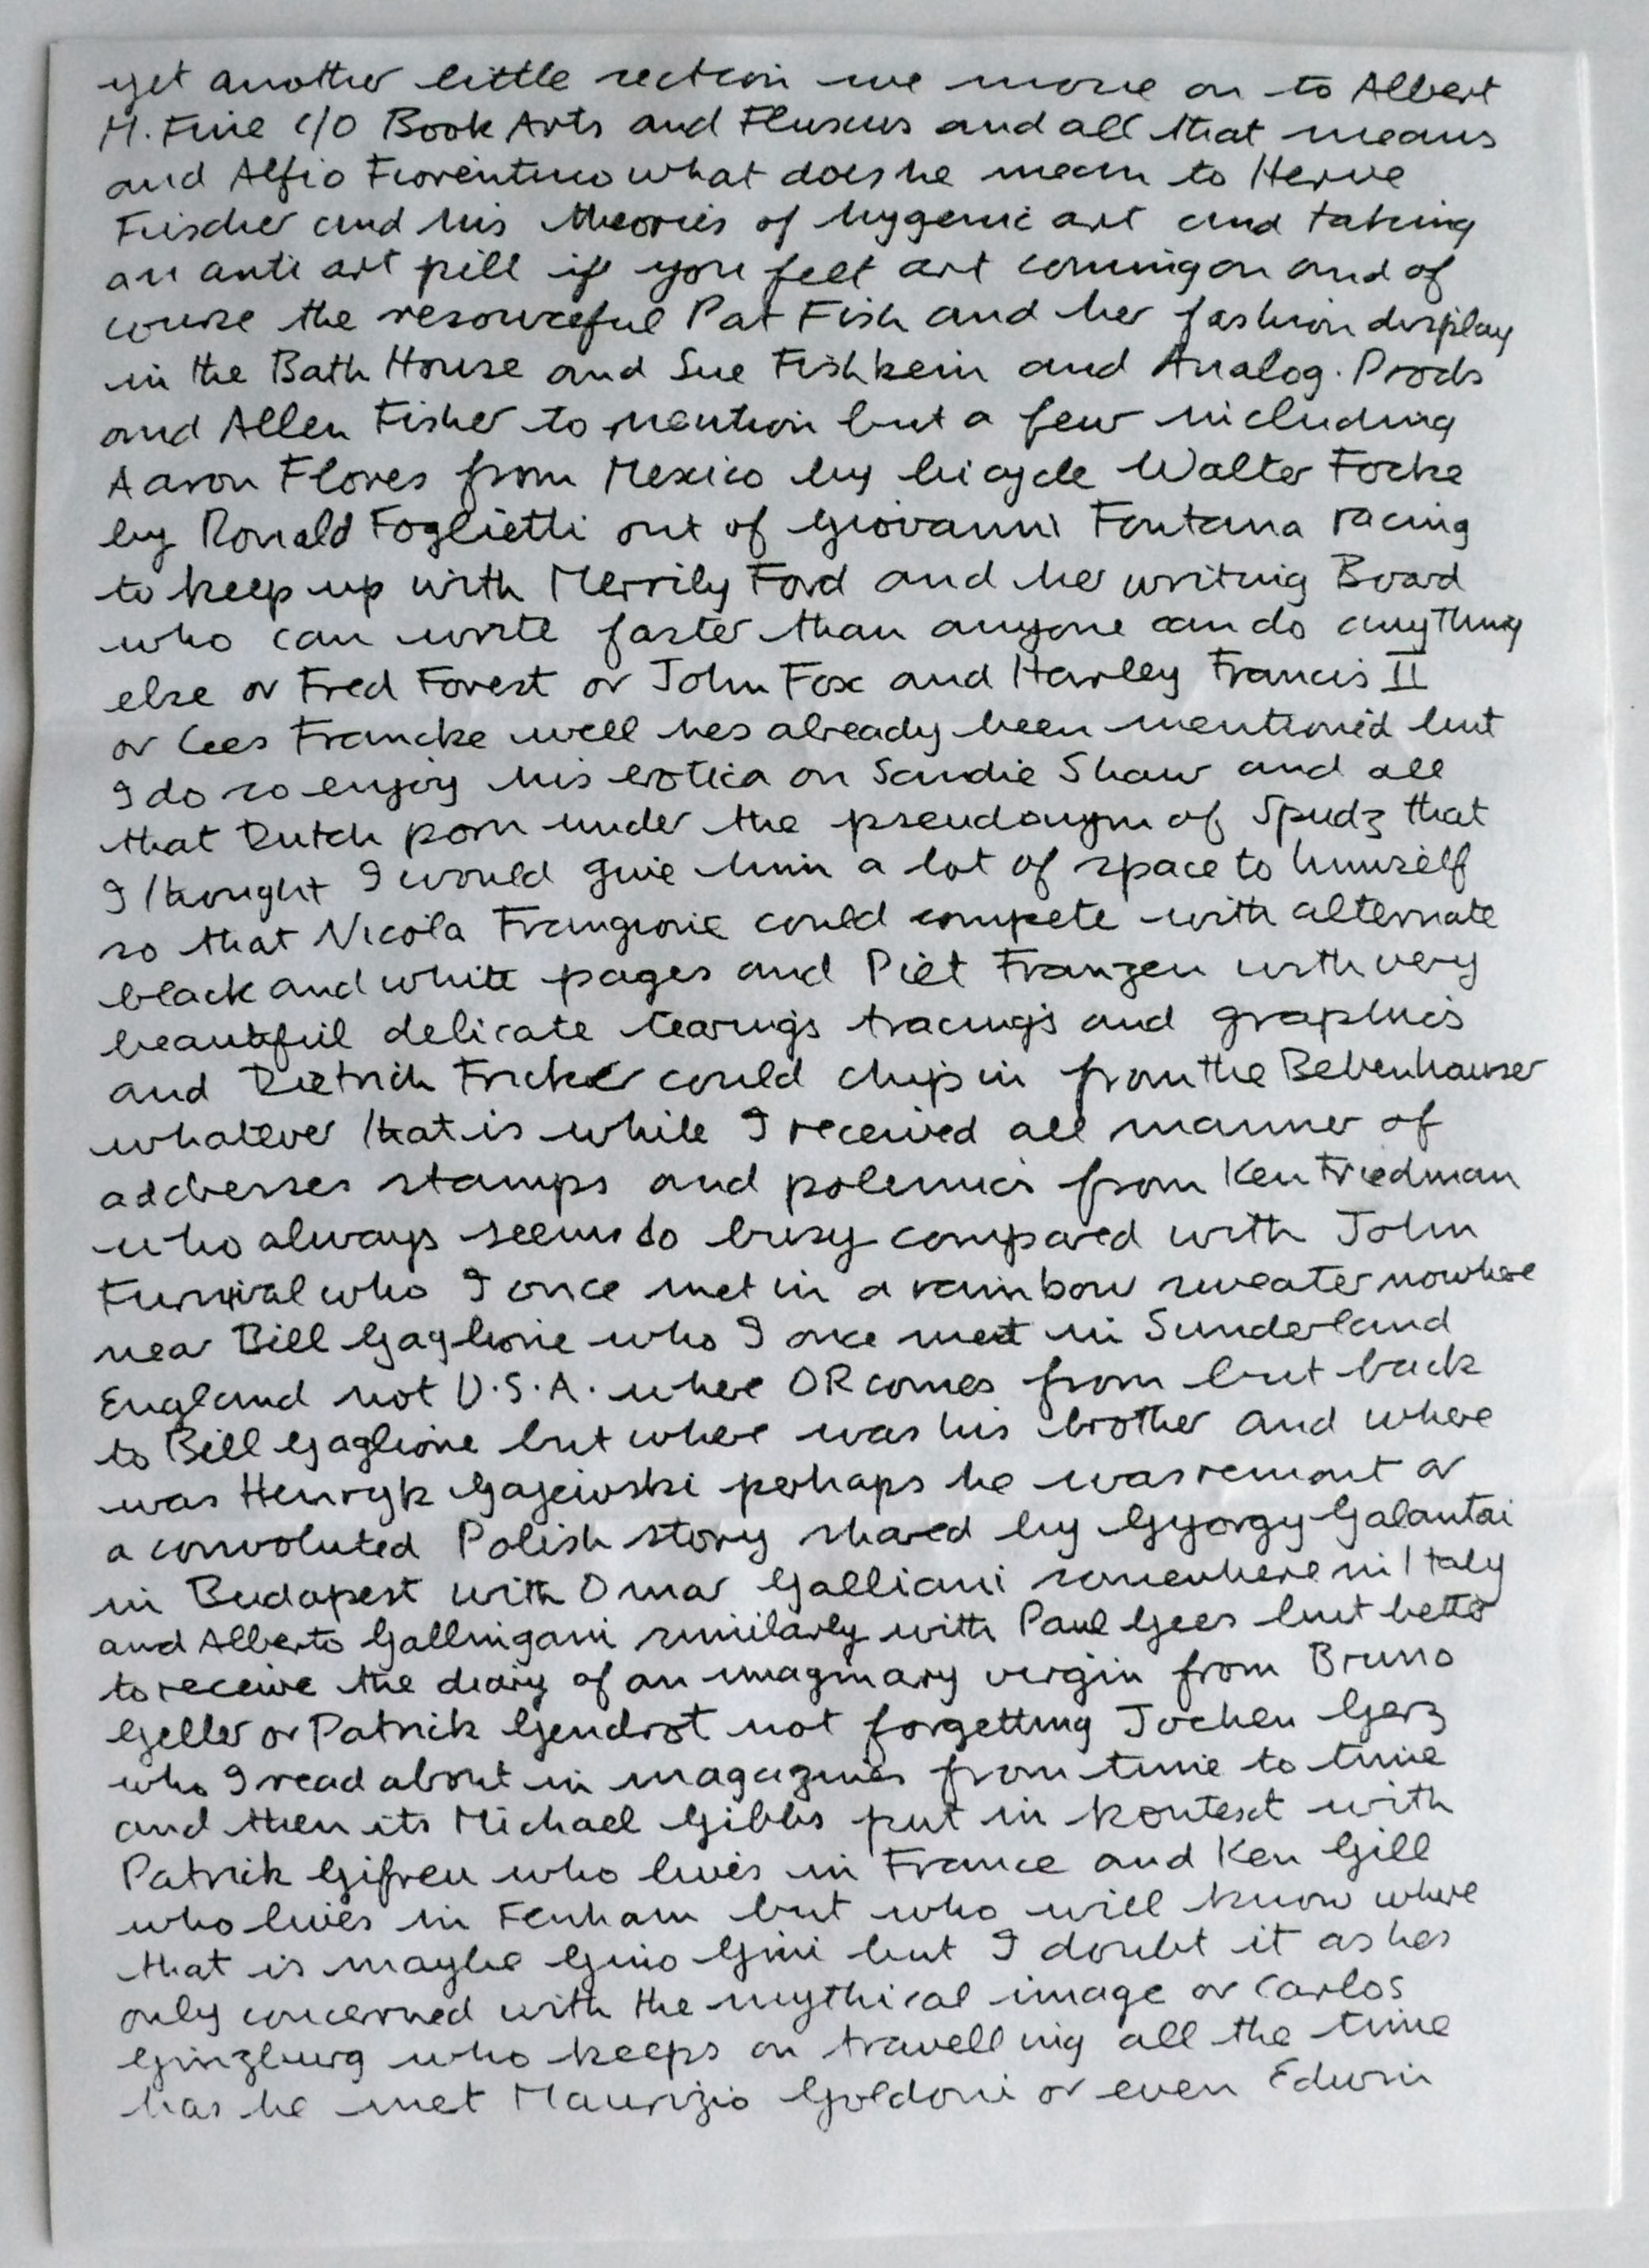 yet another little section we move on to Albert
M. Fine c/o Book Arts and Fluxus and all that means
and Alfio Fiorentino what does he mean to Herve
Fischer and his theories of hygenic art and taking
an anti art pill if you felt art coming on and of
course the resourceful Pat Fish and her fashion display
in the Bath House and Sue Fishbein and Analog. Prods
and Allen Fisher to mention but a few including
Aaron Flores from Mexico by bicycle Walter Focke
by Ronald Foglietti out of Giovanni Fontana racing
to keep up with Merrily Ford and her writing Board
who can write faster than anyone can do anything
else or Fred Forest or John Fox and Harley Francis II
or Cees Francke well hes already been mentioned but
I do so enjoy his erotica on Sandie Shaw and all
that Dutch porn under the pseudonym of Spudz that
I thought I would give him a lot of space to himself
so that Nicola Frangione could compete with alternate
black and white pages and Piet Franzen with very
beautiful delicate tearings tracings and graphics
and Dietrich Fricker could chip in from the Bebenhauser
whatever that is while I received all manner of
addresses stamps and polemics from Ken Friedman
who always seems so busy compared with John
Furnival who I once met in a rainbow sweater nowhere
near Bill Gaglione who I once meet in Sunderland
England not U.S.A. where OR comes from but back
to Bill Gaglione but where was his brother and where
was Henryk Gajewski perhaps he was remont or
a convoluted Polish story shared by Gyorgy Galantai
in Budapest with Omar Galliani somewhere in Italy
and Alberto Gallingani similarly with Paul Gees but better
to receive the diary of an imaginary virgin from Bruno
Geller or Patrick Gendrot not forgetting Jochen Gerz
who I read about in magazines from time to time
and then its Michael Gibbs put in kontext with
Patrick Gifreu who lives in France and Ken Gill
who lives in Fenham but who will know where
that is maybe Gino Gini but I doubt it as hes
only concerned with the mythical image or Carlos
Ginzburg who keeps on travelling all the time
has he met Maurizio Goldoni or even Edwin